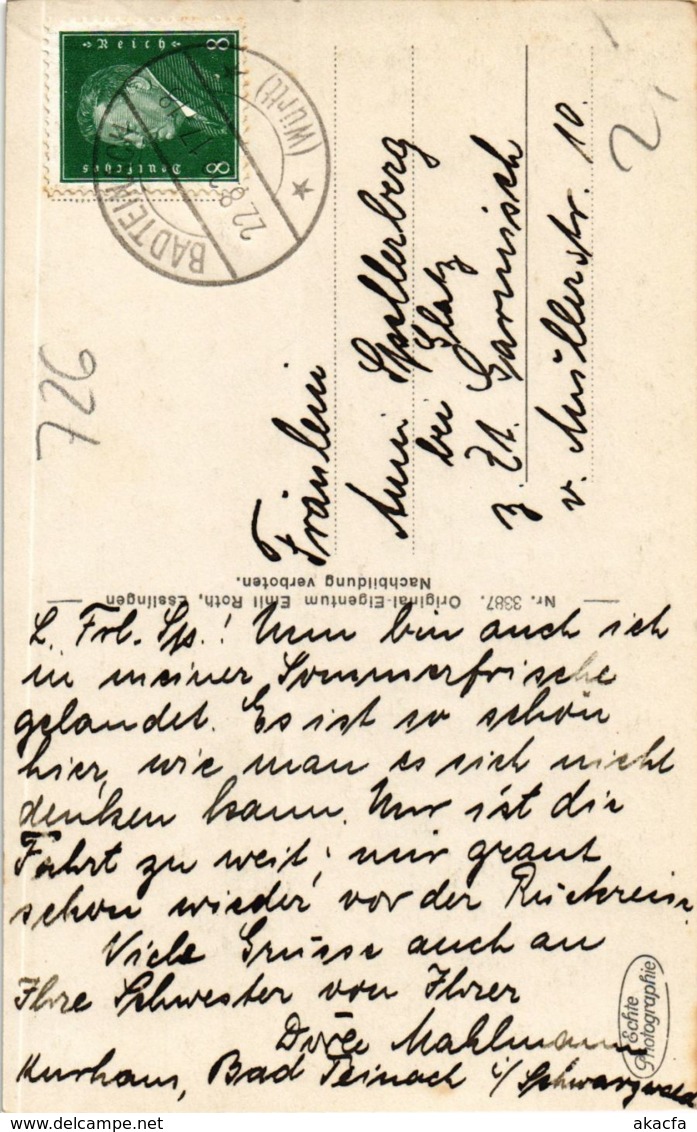 8 Deutsches Reich 8
BAD TEINACH
(Württ)
22.8. 17-18
726
2,
Fräulein
Anni Spallerberg
bei Glatz
z. Zt. Garmisch
v. Müllerstr. 10.
Nr. 3387. Original-Eigentum Emil Roth, Esslingen
Nachbildung verboten.
L. Frl. Sp.! Nun bin auch ich
in meiner Sommerfrische
gelandet. Es ist so schön
hier, wie man es sich nicht
denken kann. Nur ist die
Fahrt zu weit; mir graut
schon wieder vor der Rückreise.
Viele Grüsse auch an
Ihre Schwester von Ihrer
Mahlmann
Kurhaus, Bad Teinach i/ Schwarzwald
Echte
Photographie
delcampe.net
akacfa
akacfa